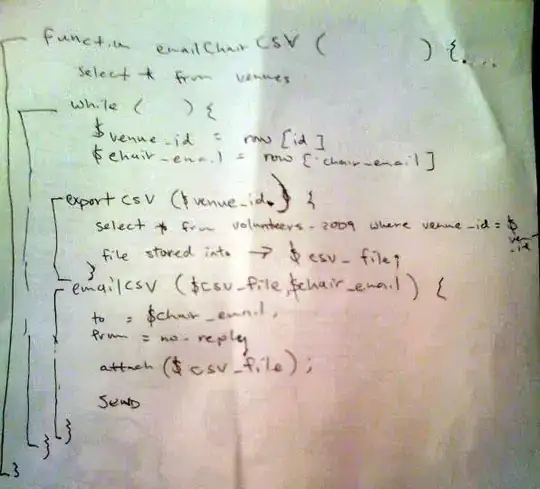 function emailChairCSV ( ) {....
select * from venues
while ( ) {
$venue_id = row [id]
$chair_email = row ['chair_email]
export CSV ($venue_id) {
select * from volunteers_2009 where venue_id = $venue_id
file stored into → $csv_file;
}
emailcsv ($csv_file, $chair_email) {
to = $chair_email,
from = no-reply
attach ($csv_file);
SEND
}
}
}